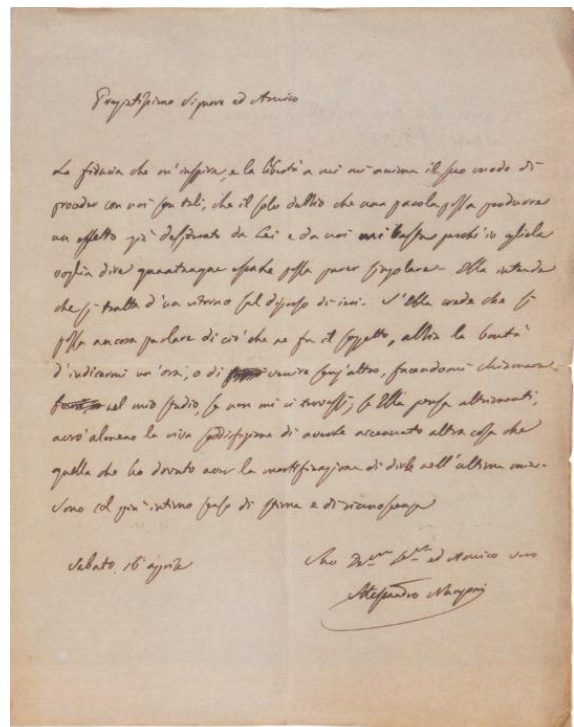 Pregiatissimo Signore ed Amico
La fiducia che m'inspira, e la libertà a cui mi anima il suo modo di
proceder con noi son tali, che il solo dubbio che una parola possa produrre
un effetto già desiderato da Lei e da noi mi basta perch'io gliela
voglia dire quantunque possa parer singolare. Ella intende
che si tratta d'un ritorno sul discorso di ieri. S'Ella crede che si
possa ancora parlare di ciò che ne fu il soggetto, abbia la bontà
d'indicarmi un'ora, o di venire senz'altro, facendomi chiamare
nel mio studio, se non mi ci trovassi; se Ella pensa altrimenti,
avrò almeno la viva soddisfazione di averle accennato altra cosa che
quella che ho dovuto aver la mortificazione di dirle nell'ultima
Sono col più intimo senso di stima e di riconoscenza
Sabato 16 aprile
Suo ed Amico vero
Alessandro Manzoni